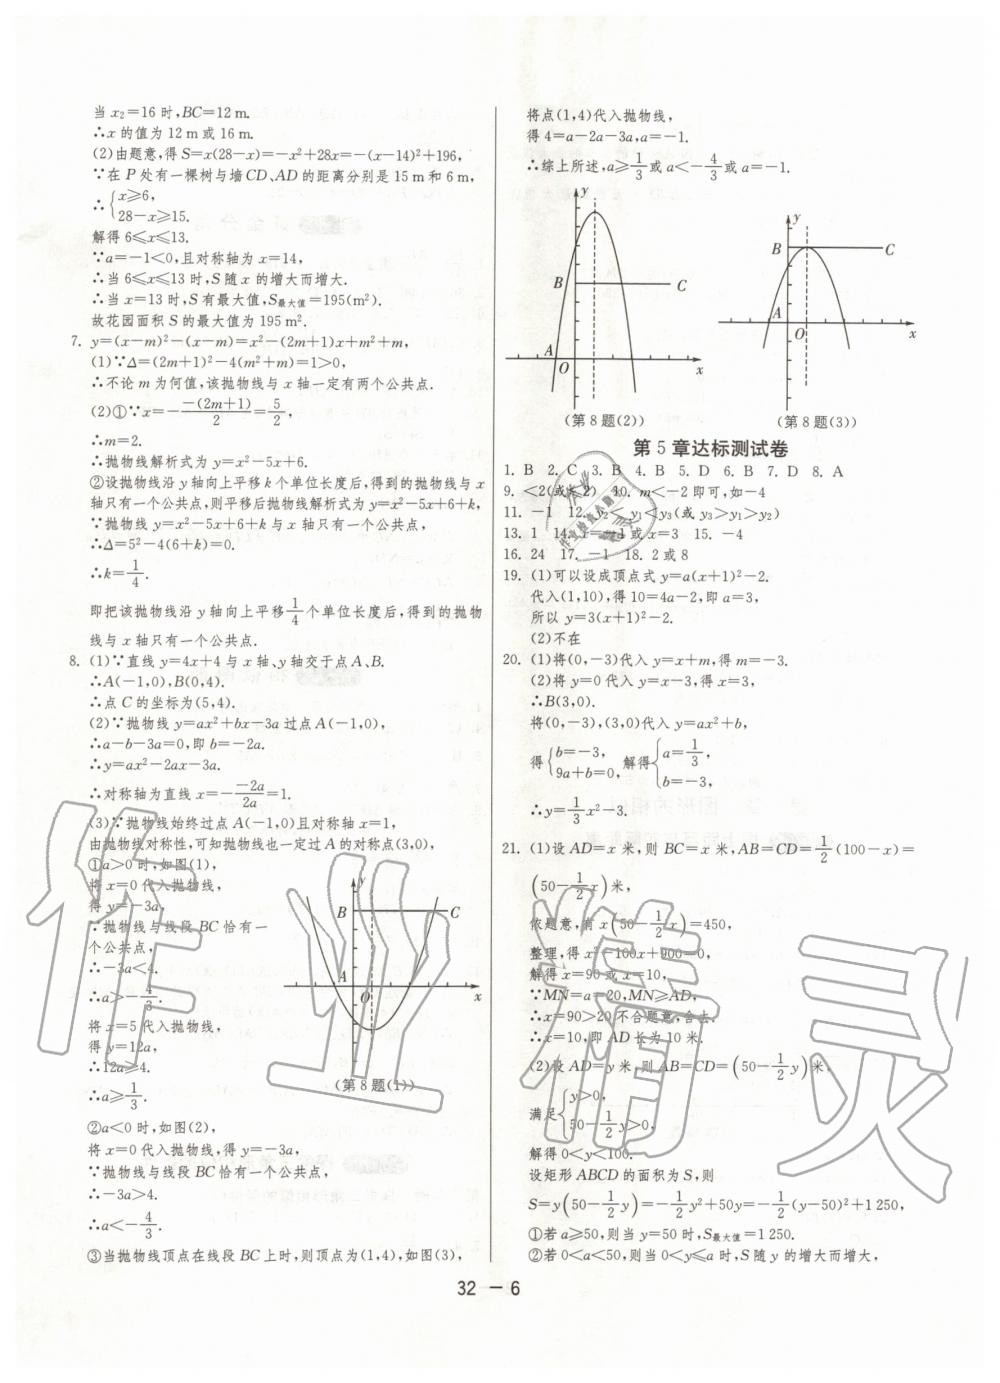 当 x₂=16 时,BC=12 m.
∴x 的值为 12 m 或 16 m.
(2)由题意,得 S=x(28-x)=-x²+28x=-(x-14)²+196,
∵在 P 处有一棵树与墙 CD、AD 的距离分别是 15 m 和 6 m,
∴{x≥6,
28-x≥15.
解得 6≤x≤13.
∵a=-1<0,且对称轴为 x=14,
∴当 6≤x≤13 时,S 随 x 的增大而增大.
∴当 x=13 时,S 有最大值,S最大值=195(m²).
故花园面积 S 的最大值为 195 m².
7. y=(x-m)²-(x-m)=x²-(2m+1)x+m²+m,
(1)∵Δ=(2m+1)²-4(m²+m)=1>0,
∴不论 m 为何值,该抛物线与 x 轴一定有两个公共点.
(2)①∵x=-\frac{-(2m+1)}{2}=\frac{5}{2},
∴m=2.
∴抛物线解析式为 y=x²-5x+6.
②设抛物线沿 y 轴向上平移 k 个单位长度后,得到的抛物线与 x
轴只有一个公共点,则平移后抛物线解析式为 y=x²-5x+6+k,
∵抛物线 y=x²-5x+6+k 与 x 轴只有一个公共点,
∴Δ=5²-4(6+k)=0.
∴k=\frac{1}{4}.
即把该抛物线沿 y 轴向上平移\frac{1}{4}个单位长度后,得到的抛物
线与 x 轴只有一个公共点.
8. (1)∵直线 y=4x+4 与 x 轴、y 轴交于点 A、B.
∴A(-1,0),B(0,4).
∴点 C 的坐标为(5,4).
(2)∵抛物线 y=ax²+bx-3a 过点 A(-1,0),
∴a-b-3a=0,即 b=-2a.
∴y=ax²-2ax-3a.
∴对称轴为直线 x=-\frac{-2a}{2a}=1.
(3)∵抛物线始终过点 A(-1,0)且对称轴 x=1,
由抛物线对称性,可知抛物线也一定过 A 的对称点(3,0),
①a>0 时,如图(1),
将 x=0 代入抛物线,
得 y=-3a,
∵抛物线与线段 BC 恰有一
个公共点,
∴-3a<4.
∴a>-\frac{4}{3}.
将 x=5 代入抛物线,
得 y=12a,
∴12a≥4.
∴a≥\frac{1}{3}.
y
B
C
A
O
x
(第 8 题(1))
②a<0 时,如图(2),
将 x=0 代入抛物线,得 y=-3a,
∵抛物线与线段 BC 恰有一个公共点,
∴-3a>4.
∴a<-\frac{4}{3}.
③当抛物线顶点在线段 BC 上时,则顶点为(1,4),如图(3),
将点(1,4)代入抛物线,
得 4=a-2a-3a,a=-1.
∴综上所述,a≥\frac{1}{3}或 a<-\frac{4}{3}或 a=-1.
y
B
C
A
O
x
(第 8 题(2))
y
B
C
A
O
x
(第 8 题(3))
第 5 章达标测试卷
1. B 2. C 3. B 4. B 5. D 6. B 7. D 8. A
9. <2(或≤2) 10. m<-2 即可,如-4
11. -1 12. y₂<y₁<y₃(或 y₃>y₁>y₂)
13. 1 14. x=-1 或 x=3 15. -4
16. 24 17. -1 18. 2 或 8
19. (1)可以设成顶点式 y=a(x+1)²-2.
代入(1,10),得 10=4a-2,即 a=3,
所以 y=3(x+1)²-2.
(2)不在
20. (1)将(0,-3)代入 y=x+m,得 m=-3.
(2)将 y=0 代入 y=x-3,得 x=3,
∴B(3,0).
将(0,-3),(3,0)代入 y=ax²+b,
得{b=-3, 9a+b=0, 解得{a=\frac{1}{3}, b=-3.
∴y=\frac{1}{3}x²-3.
21. (1)设 AD=x 米,则 BC=x 米,AB=CD=\frac{1}{2}(100-x)=
(50-\frac{1}{2}x)米,
依题意,有 x(50-\frac{1}{2}x)=450,
整理,得 x²-100x+900=0,
解得 x=90 或 x=10,
∵MN=a=20,MN≥AD,
∴x=90>20 不合题意,舍去.
∴x=10,即 AD 长为 10 米.
(2)设 AD=y 米,则 AB=CD=(50-\frac{1}{2}y)米,
满足{y>0, 50-\frac{1}{2}y>0,
解得 0<y<100.
设矩形 ABCD 的面积为 S,则
S=y(50-\frac{1}{2}y)=-\frac{1}{2}y²+50y=-\frac{1}{2}(y-50)²+1 250,
①若 a≥50,则当 y=50 时,S最大值=1 250.
②若 0<a<50,则当 0<y≤a 时,S 随 y 的增大而增大,
32 - 6
作业精灵